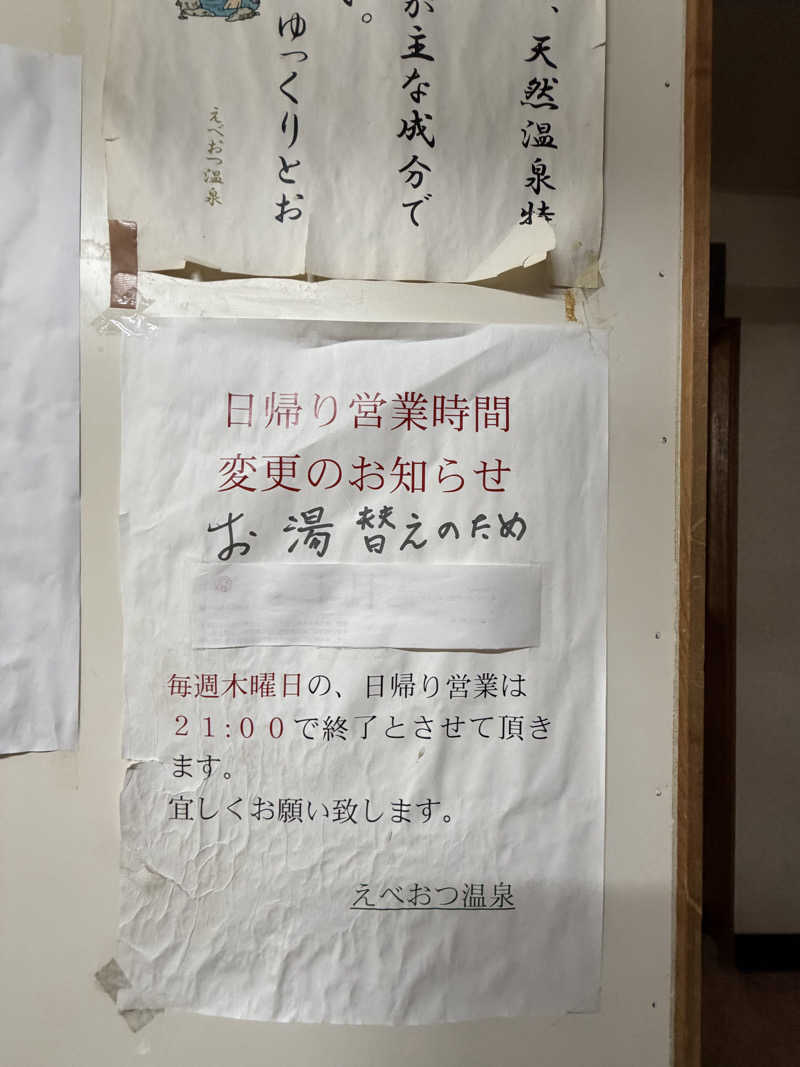 、天然温泉特
が主な成分で
。
ゆっくりとお
えべおつ温泉
日帰り営業時間
変更のお知らせ
お湯替えのため
毎週木曜日の、日帰り営業は
２１:００で終了とさせて頂き
ます。
宜しくお願い致します。
えべおつ温泉